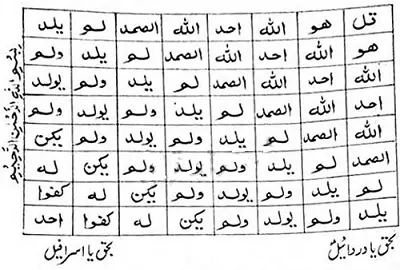 قل هو الله احد الله الصمد لم يلد
هو الله احد الله الصمد لم يلد ولم
الله احد الله الصمد لم يلد ولم يولد
احد الله الصمد لم يلد ولم يولد ولم
الله الصمد لم يلد ولم يولد ولم يكن
الصمد لم يلد ولم يولد ولم يكن له
لم يلد ولم يولد ولم يكن له كفوا
يلد ولم يولد ولم يكن له كفوا احد
بسم الله الرحمن الرحيم
بحق یا دردائیل
بحق یا اسرافیل